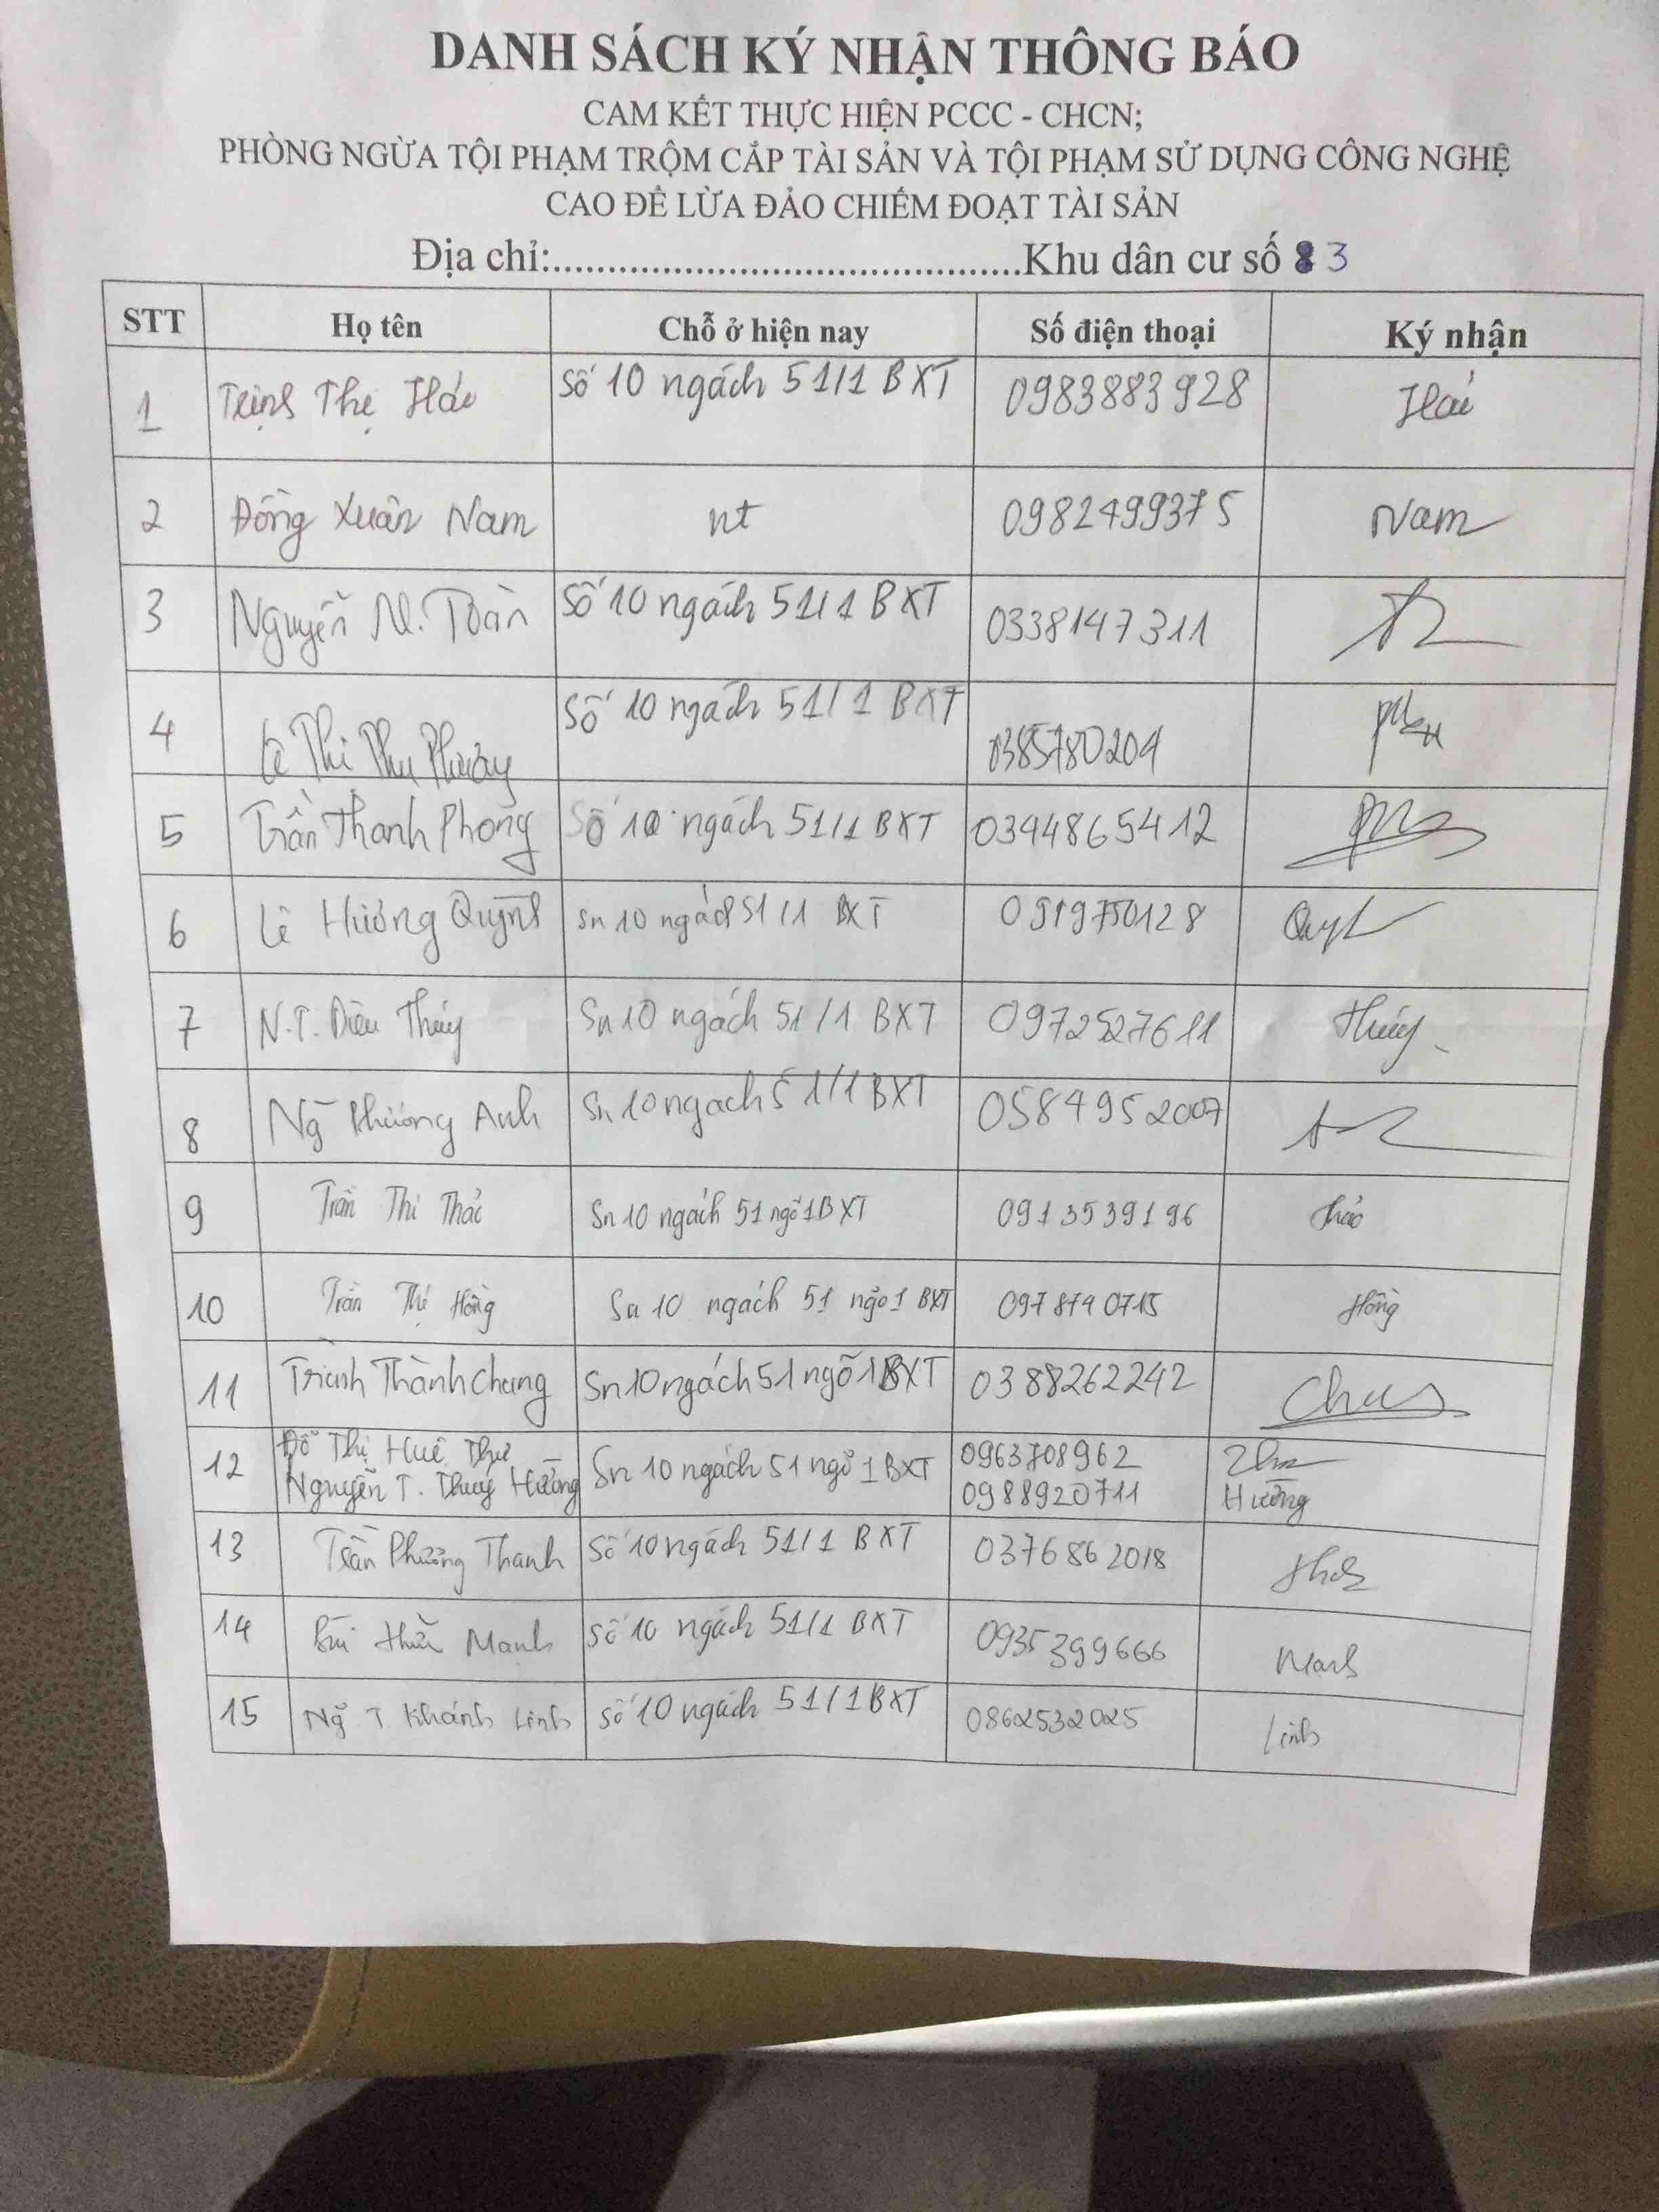 DANH SÁCH KÝ NHẬN THÔNG BÁO
CAM KẾT THỰC HIỆN PCCC - CHCN;
PHÒNG NGỪA TỘI PHẠM TRỘM CẮP TÀI SẢN VÀ TỘI PHẠM SỬ DỤNG CÔNG NGHỆ
CAO ĐỂ LỪA ĐẢO CHIẾM ĐOẠT TÀI SẢN
Địa chỉ:...........................................Khu dân cư số 3
STT Họ tên Chỗ ở hiện nay Số điện thoại Ký nhận
1 Trịnh Thị Hải Số 10 ngách 51/1 BXT 0983883928 Hải
2 Đồng Xuân Nam nt 0982499375 Nam
3 Nguyễn N. Toàn Số 10 ngách 51/1 BXT 0338147311
4 Lê Thị Thu Phương Số 10 ngách 51/1 BXT 0385780204
5 Trần Thanh Phong Số 10 ngách 51/1 BXT 0344865412
6 Lê Hương Quỳnh Sn 10 ngách 51/1 BXT
7 N.T. Diệu Thúy Sn 10 ngách 51/1 BXT 0972527611 Thúy
8 Ng Phương Anh Sn 10 ngach 51/1 BXT 0584952007
9 Trần Thị Thảo Sn 10 ngách 51 ngõ 1 BXT 0913539196 Thảo
10 Trần Thị Hồng Sn 10 ngách 51 ngõ 1 BXT Hồng
11 Trịnh Thành Chung Sn 10 ngách 51 ngõ 1 BXT 0388262242
12 Đỗ Thị Huê Thư Sn 10 ngách 51 ngõ 1 BXT 0963708962 Thư
Nguyễn T. Thuý Hường 0988920711 Hường
13 Trần Phương Thanh Số 10 ngách 51/1 BXT 0376862018
14 Bùi Mạnh Số 10 ngách 51/1 BXT 0935399666 Manh
15 Ng T Khánh Linh Số 10 ngách 51/1 BXT 0862532025 Linh